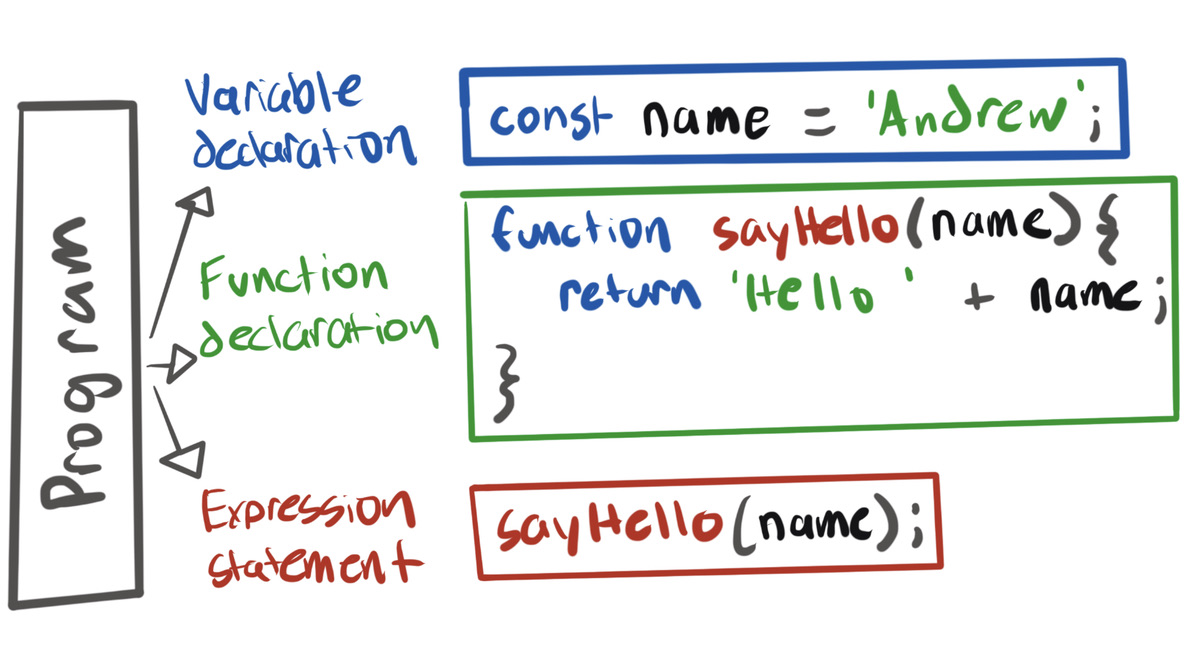 Program
Variable
declaration
const name = 'Andrew';
Function
declaration
function sayHello(name){
return 'Hello ' + name;
}
Expression
statement
sayHello(name);